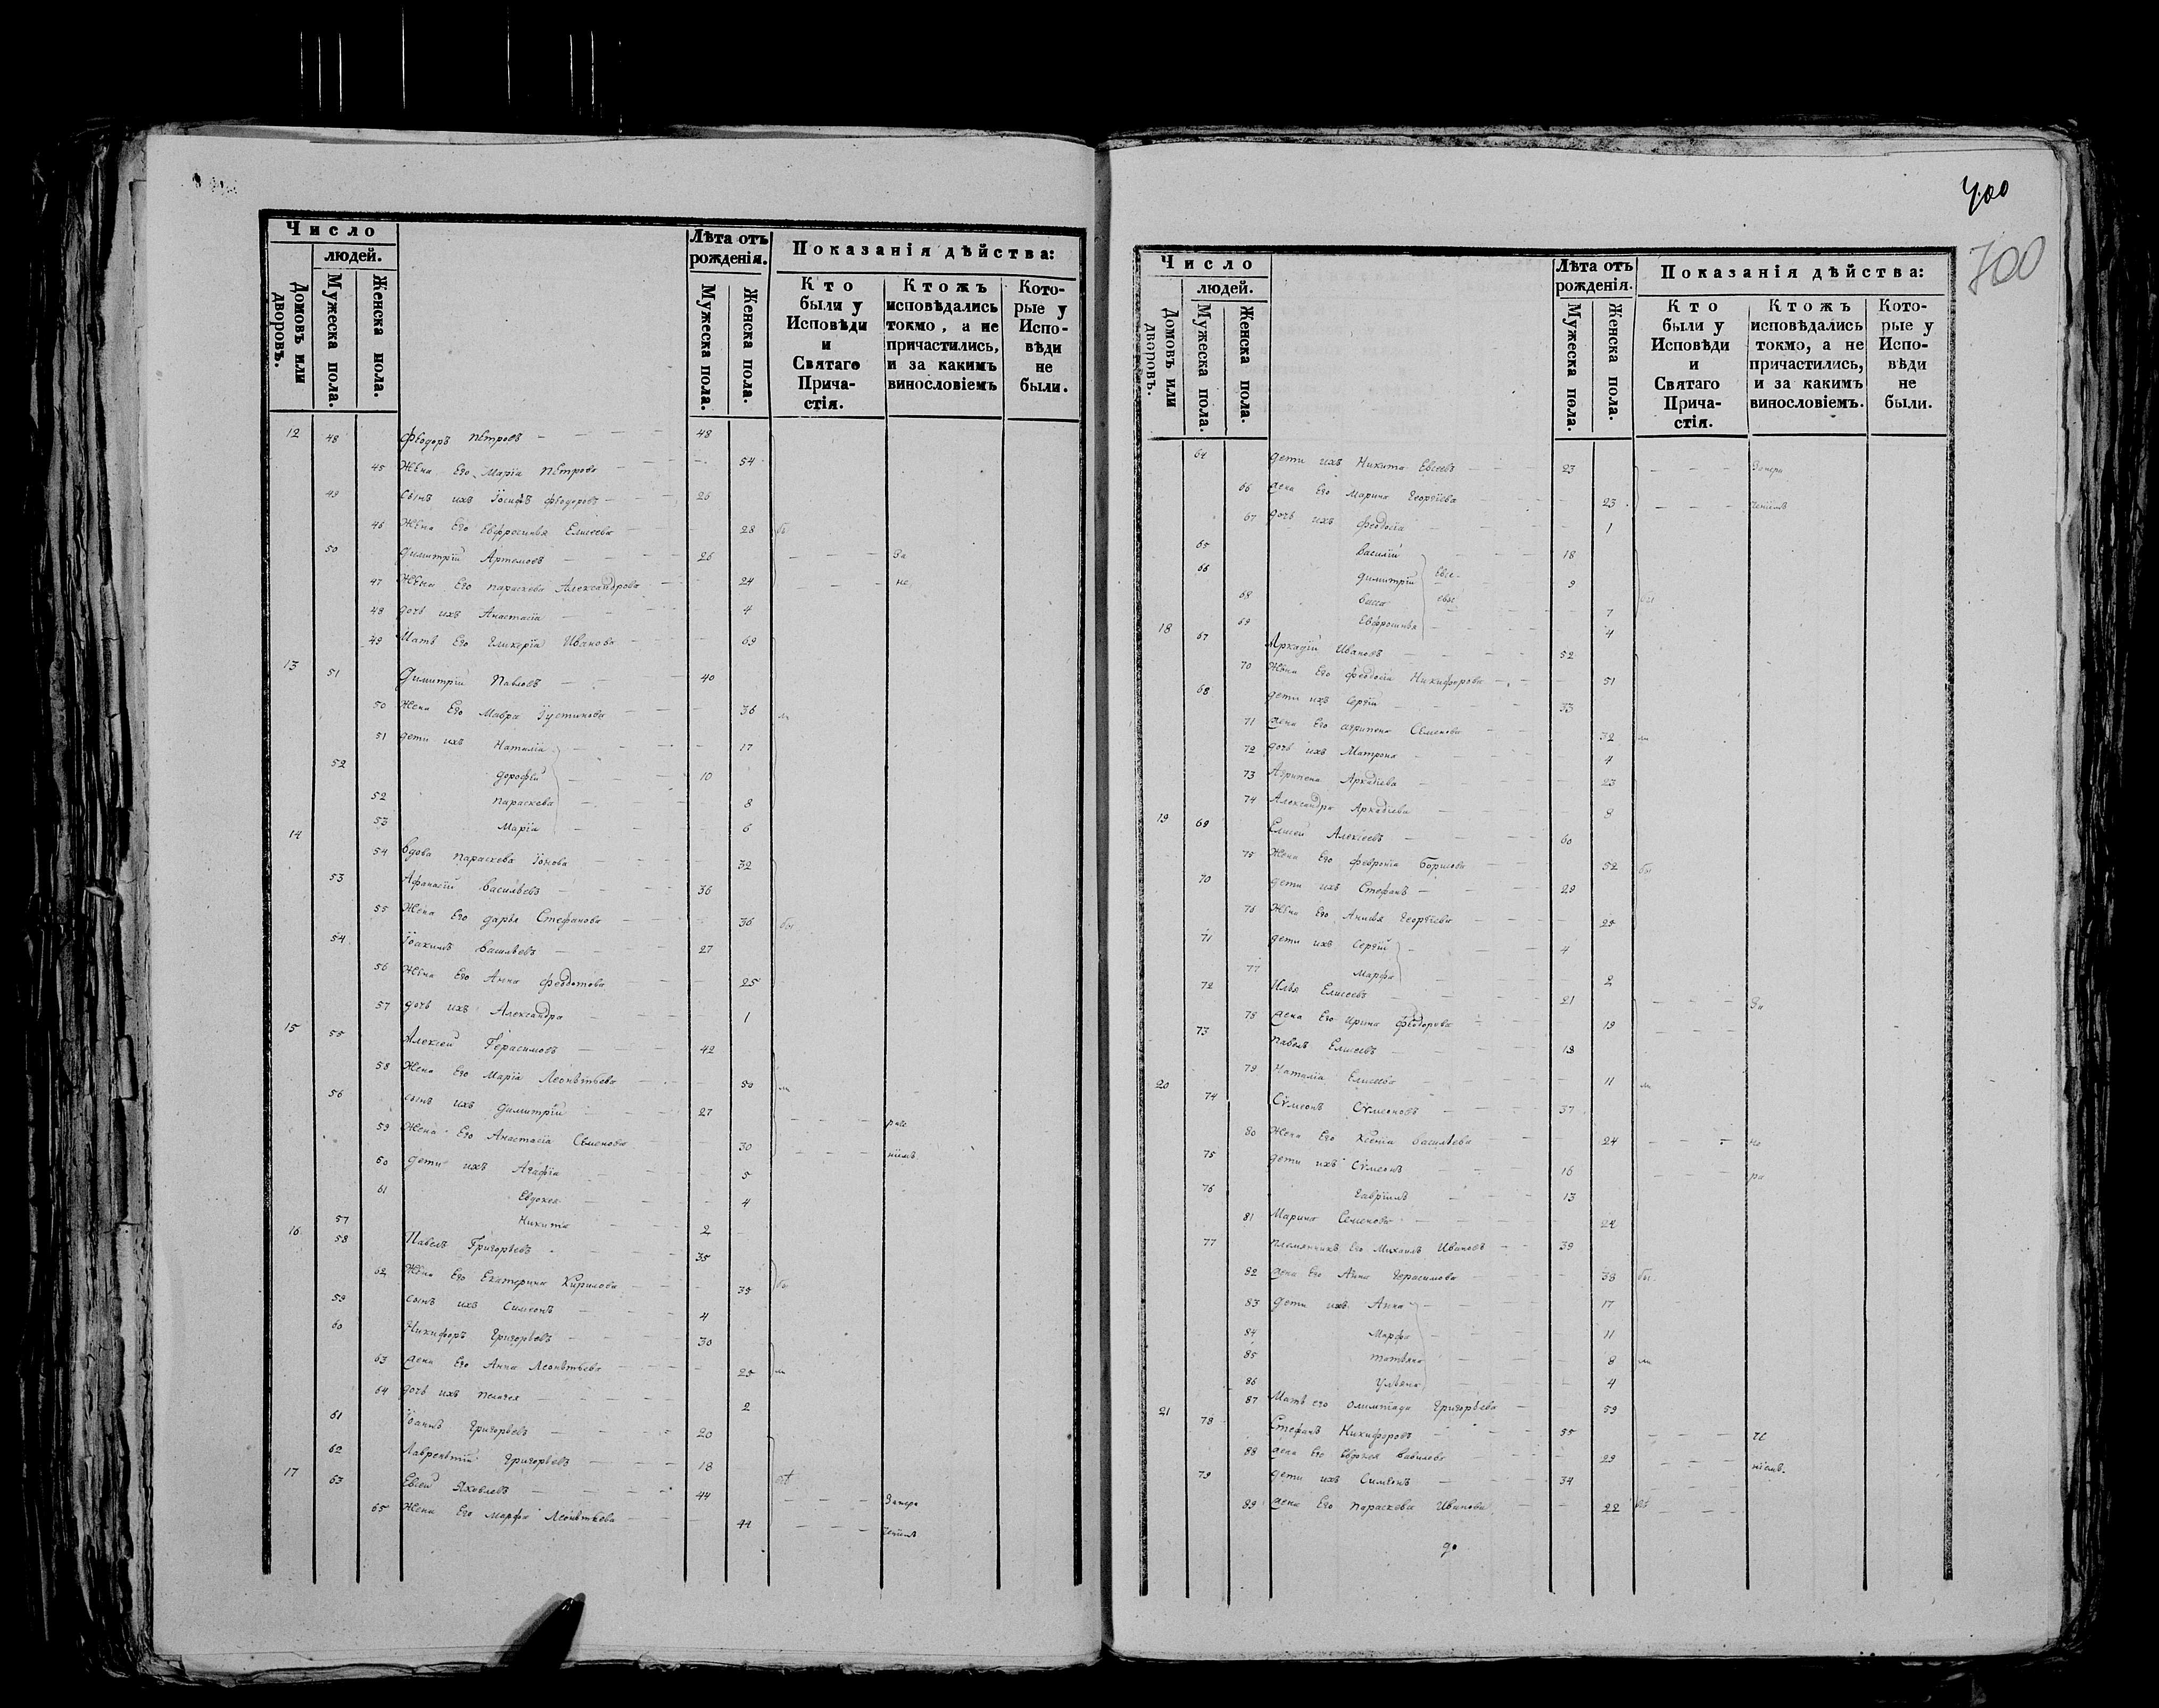 Число
людей.
Домовъ или дворовъ.
Мужеска пола.
Женска пола.
Лѣта отъ рожденія.
Мужеска пола.
Женска пола.
Показанія дѣйства:
Кто были у Исповѣди и Святаго Причастія.
Ктожъ исповѣдались токмо, а не причастились, и за какимъ винословіемъ
Которые у Исповѣди не были.
12 48 Ѳеодоръ Петровъ 48
45 Жена Его Марія Петрова 54
49 Сынъ ихъ Іосифъ Ѳеодоровъ 26
46 Жена Его Евфросинья Елисеева 28 бы
50 Димитрій Артемовъ 26 за
47 Жена Его Параскева Александрова 24 не
48 дочь ихъ Анастасія 4
49 Мать Его Гликерія Иванова 69
13 51 Димитрій Павловъ 40
50 Жена Его Мавра Іустинова 36 ли
51 дети ихъ Наталія 17
52 Дорофей 10
52 Параскева 8
53 Марія 6
14 54 Вдова Параскева Іонова 32
53 Афанасій Васильевъ 36
55 Жена Его Дарья Стефанова 36 бы
54 Іоакимъ Васильевъ 27
56 Жена Его Анна Феодотова 25
57 дочь ихъ Александра 1
15 55 Алексей Герасимовъ 42
58 Жена Его Марія Леонтьева 50 ли
56 сынъ ихъ Димитрій 27
59 Жена Его Анастасія Семенова 30 ніемъ
60 дети ихъ Агафія 5
61 Евдокея 4
57 Никита 2
16 58 Павелъ Григорьевъ 35
62 Жена Его Екатерина Кирилова 35 бы
59 сынъ ихъ Симеонъ 4
60 Никифоръ Григорьевъ 30
63 жена Его Анна Леонтьева 25 ли
64 дочь ихъ Пелагея 2
61 Іоаннъ Григорьевъ 20
62 Лаврентій Григорьевъ 18
17 63 Евсей Яковлевъ 44
65 Жена Его Марфа Леонтьева 44
400
700
Число
людей.
Домовъ или дворовъ.
Мужеска пола.
Женска пола.
Лѣта отъ рожденія.
Мужеска пола.
Женска пола.
Показанія дѣйства:
Кто были у Исповѣди и Святаго Причастія.
Ктожъ исповѣдались токмо, а не причастились, и за какимъ винословіемъ.
Которые у Исповѣди не были.
64 дети ихъ Никита Евсеевъ 23
66 жена Его Марина Георгіева 23
67 дочь ихъ Феодосія 1
65 Василій 18
66 Димитрій 9
68 Васса 7
69 Евфросинья 4
18 67 Аркадій Ивановъ 52
70 Жена Его Феодосія Никифорова 51
68 дети ихъ Сергій 33
71 жена Его Агрипена Семенова 32 ли
72 дочь ихъ Матрона 4
73 Агрипена Аркадіева 23
74 Александра Аркадіева 8
19 69 Елисей Алексеевъ 60
75 Жена Его Февронія Борисова 52 бы
70 дети ихъ Стефанъ 29
76 Жена Его Анисья Георгіева 25
71 дети ихъ Сергій 4
77 Марфа 2
72 Илья Елисеевъ 21 за
78 жена Его Ирина Феодорова 19
73 Павелъ Елисеевъ 18
79 Наталія Елисеева 11 ли
20 74 Сѵмеонъ Сѵмеоновъ 37
80 Жена Его Ксенія Васильева 24
75 дети ихъ Сѵмеонъ 16
76 Гавріилъ 13
81 Марина Семенова 24
77 Племянникъ Его Михаилъ Ивановъ 39
82 жена Его Анна Герасимова 38 бы
83 дети ихъ Анна 17
84 Марфа 11
85 Татьяна 8 ли
86 Ульяна 4
87 Мать его Олимпіада Григорьева 59
21 78 Стефанъ Никифоровъ 55
88 жена Его Евдокея Вавилова 29 ніемъ.
79 дети ихъ Симеонъ 34
89 жена Его Параскева Иванова 22